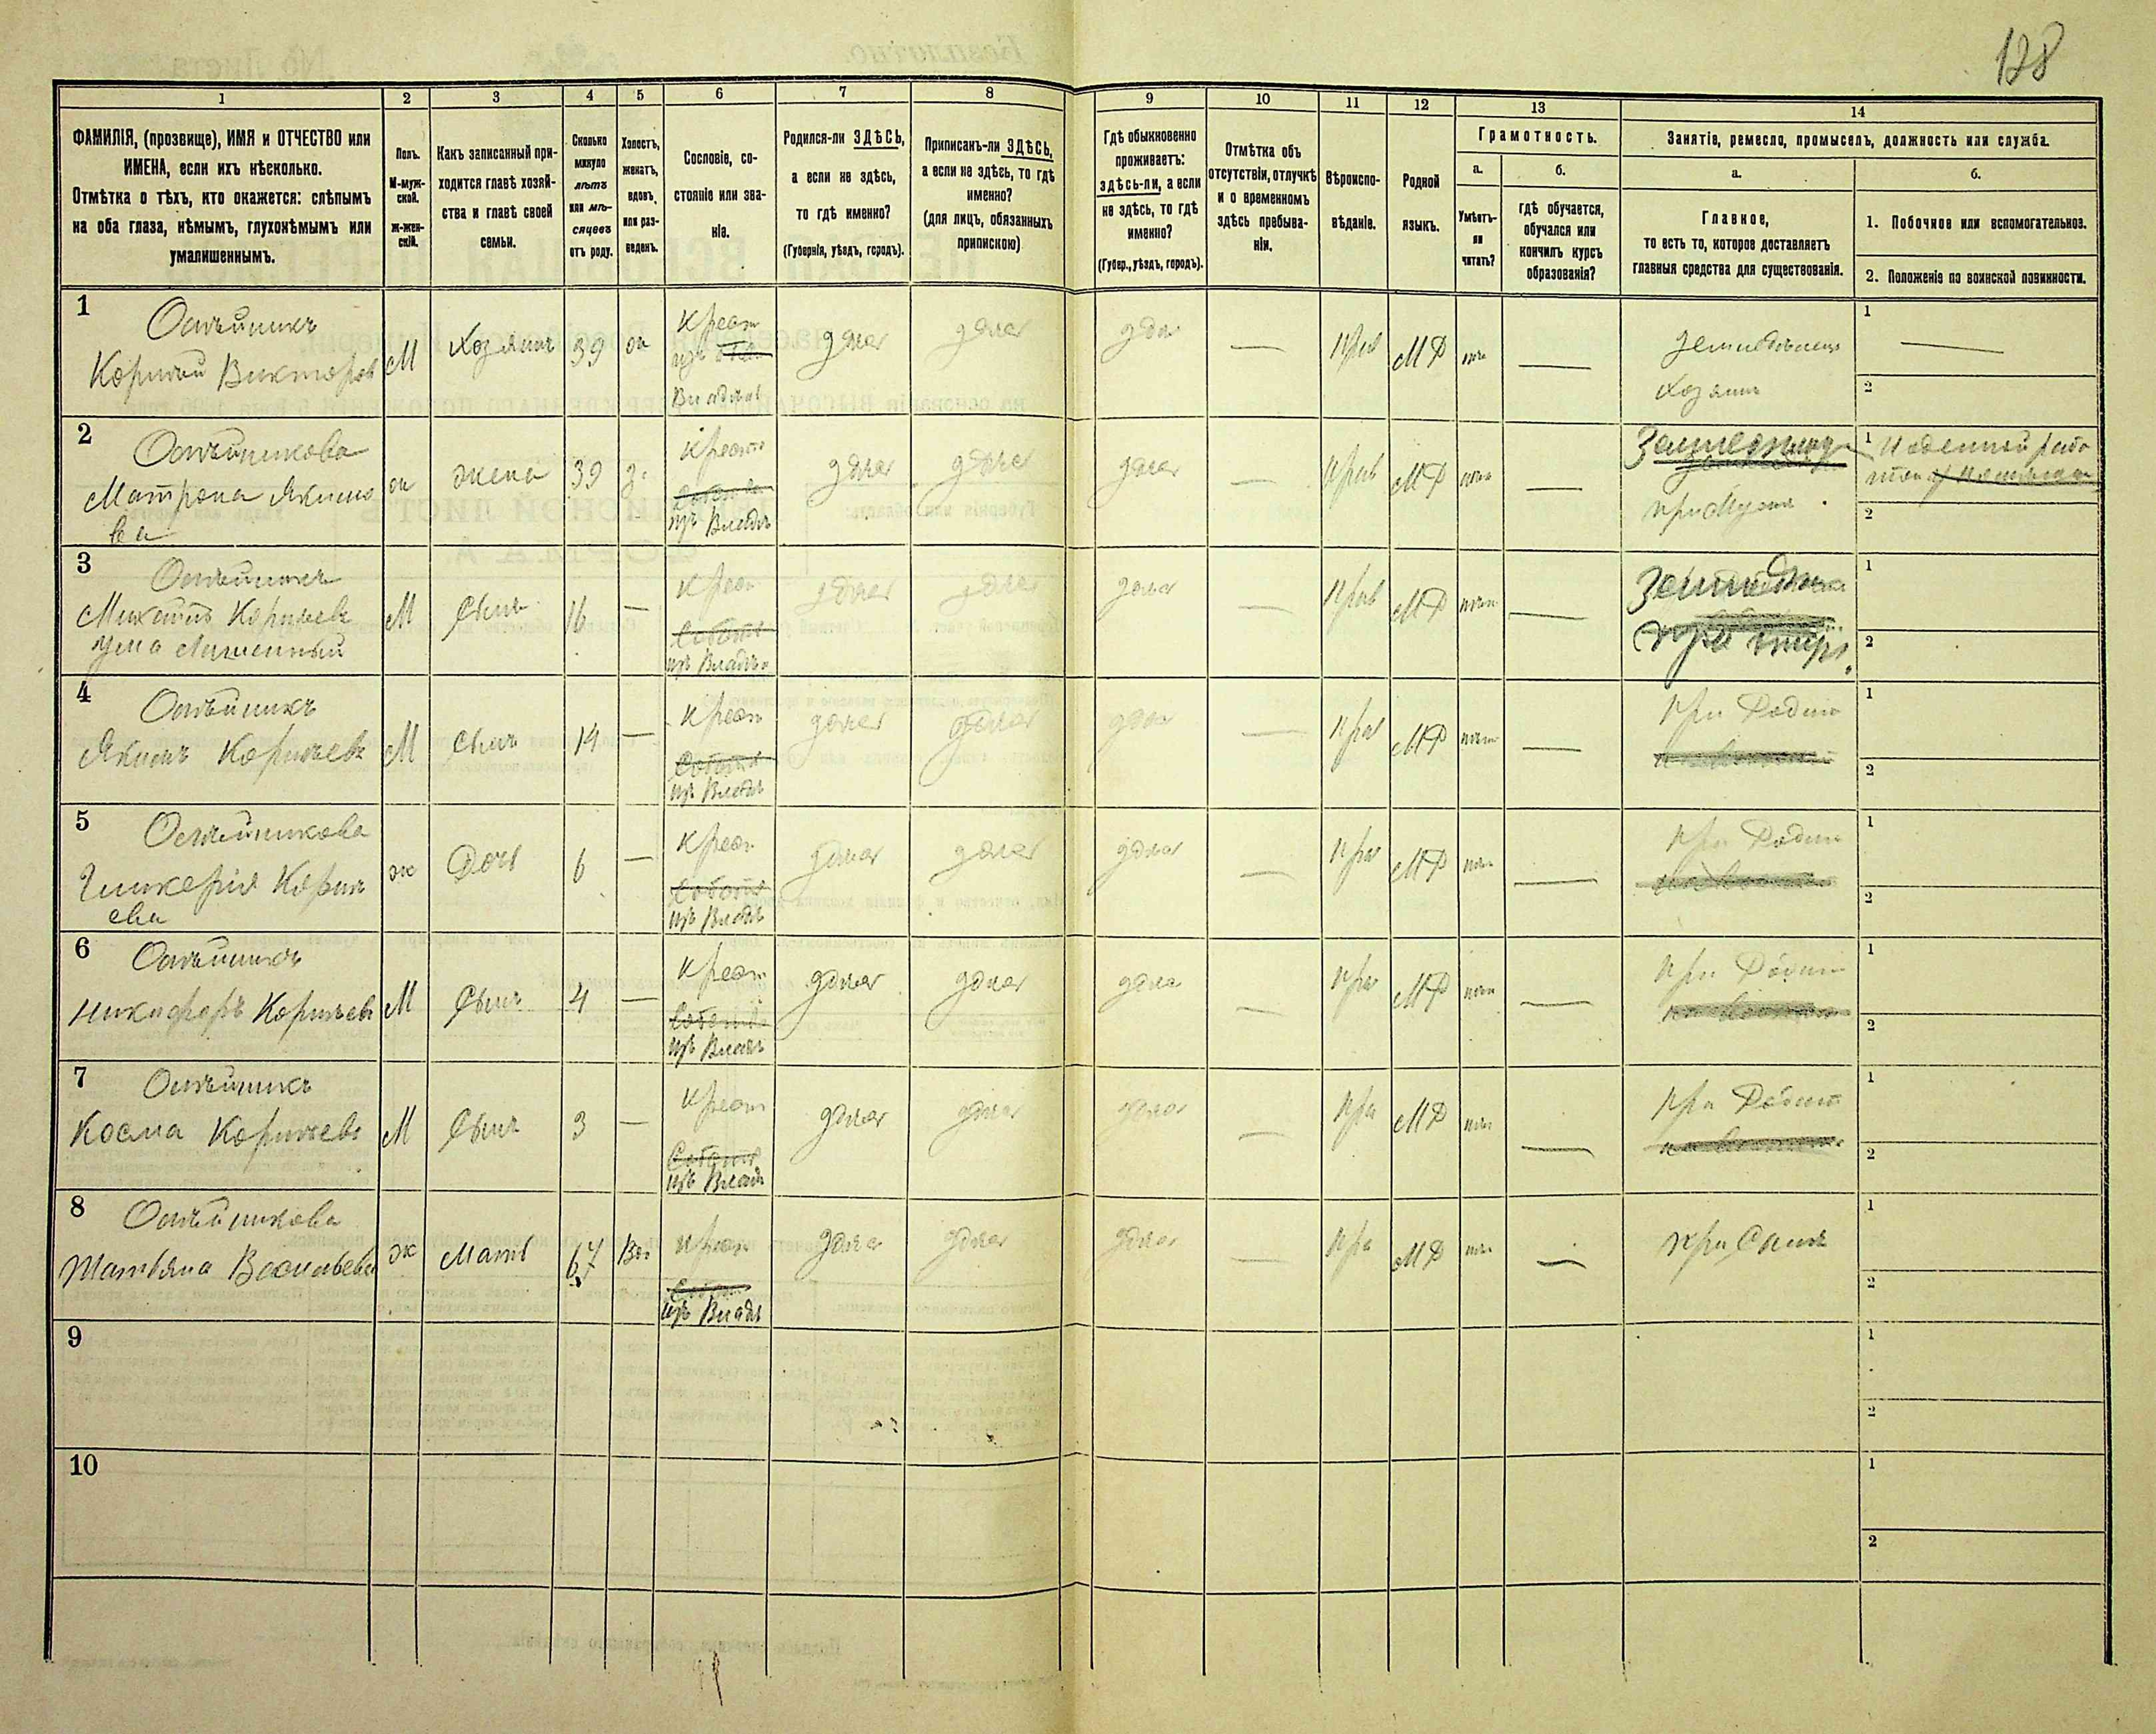 128
1 2 3 4 5 6 7 8 9 10 11 12 13 14
ФАМИЛІЯ, (прозвище), ИМЯ и ОТЧЕСТВО или
ИМЕНА, если ихъ нѣсколько.
Отмѣтка о тѣхъ, кто окажется: слѣпымъ
на оба глаза, нѣмымъ, глухонѣмымъ или
умалишеннымъ.
Полъ.
М-муж-
ской.
ж-жен-
скій.
Какъ записанный при-
ходится главѣ хозяй-
ства и главѣ своей
семьи.
Сколько
минуло
лѣтъ
или мѣ-
сяцевъ
отъ роду.
Холостъ,
женатъ,
вдовъ,
или раз-
веденъ.
Сословіе, со-
стояніе или зва-
ніе.
Родился-ли ЗДѢСЬ,
а если не здѣсь,
то гдѣ именно?
(Губернія, уѣздъ, городъ).
Приписанъ-ли ЗДѢСЬ,
а если не здѣсь, то гдѣ
именно?
(для лицъ, обязанныхъ
припискою)
Гдѣ обыкновенно
проживаетъ:
здѣсь-ли, а если
не здѣсь, то гдѣ
именно?
(Губер., уѣздъ, городъ).
Отмѣтка объ
отсутствіи, отлучкѣ
и о временномъ
здѣсь пребыва-
ніи.
Вѣроиспо-
вѣданіе.
Родной
языкъ.
Грамотность.
а.
Умѣетъ-
ли
читать?
б.
гдѣ обучается,
обучался или
кончилъ курсъ
образованія?
Занятіе, ремесло, промыселъ, должность или служба.
а.
Главное,
то есть то, которое доставляетъ
главныя средства для существованія.
б.
1. Побочное или вспомогательное.
2. Положеніе по воинской повинности.
1
Олѣйникъ
Корнѣй Викторовъ
М Хозяинъ 39 ж
Крест
изъ
Владѣл
здѣсь здѣсь здѣсь — Прав МР нѣтъ —
Земледѣлецъ
Хозяинъ
1 —
2
2
Олѣйникова
Матрона Якимо
ва
ж жена 39 з.
Крест
изъ Владѣл
здѣсь здѣсь здѣсь — Прав МР нѣтъ —
при Мужѣ
1 Поденной рабо
2
3
Олѣйникъ
Михаилъ Корнѣевъ
Ума лишенный
М Сынъ 16 —
Крест
изъ Владѣл
здѣсь здѣсь здѣсь — Прав МР нѣтъ —
1
2
4
Олѣйникъ
Якимъ Корнѣевъ
М Сынъ 14 —
Крест
изъ Владѣл
здѣсь здѣсь здѣсь — Прав МР нѣтъ —
при Родит
1
2
5
Олѣйникова
Гликерія Корнѣ
ева
ж Дочь 6 —
Крест
изъ Владѣл
здѣсь здѣсь здѣсь — Прав МР нѣтъ —
при Родит
1
2
6
Олѣйникъ
Никифоръ Корнѣевъ
М Сынъ 4 —
Крест
изъ Владѣл
здѣсь здѣсь здѣсь — Прав МР нѣтъ —
при Родит
1
2
7
Олѣйникъ
Косма Корнѣевъ
М Сынъ 3 —
Крест
изъ Владѣл
здѣсь здѣсь здѣсь — Пра МР нѣтъ —
при Родит
1
2
8
Олѣйникова
Татьяна Васильева
ж Мать 67 Вд
Крест
изъ Владѣл
здѣсь здѣсь здѣсь — Пра МР нѣтъ —
при Сынѣ
1
2
9
1
2
10
1
2